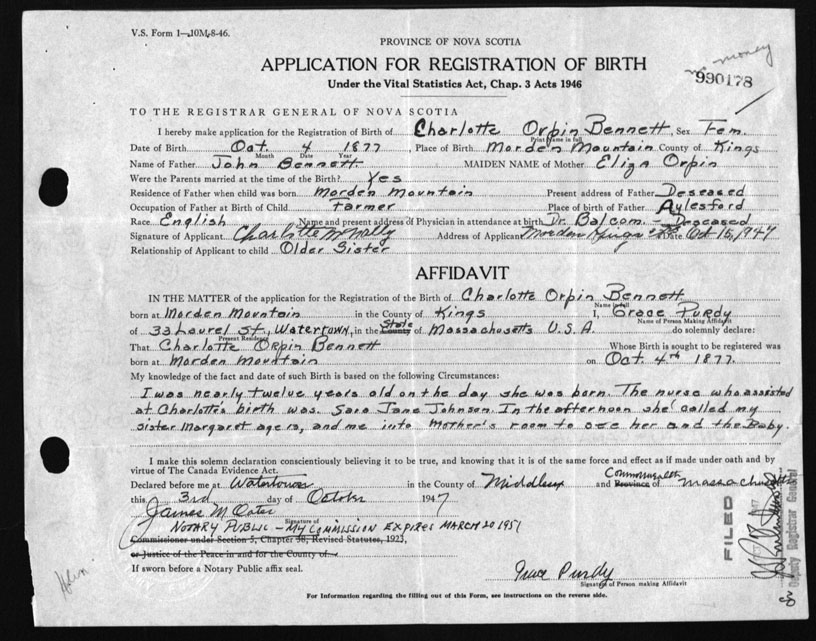 V.S. Form 1—10M-8-46.
no money
990178
PROVINCE OF NOVA SCOTIA
APPLICATION FOR REGISTRATION OF BIRTH
Under the Vital Statistics Act, Chap. 3 Acts 1946
TO THE REGISTRAR GENERAL OF NOVA SCOTIA
I hereby make application for the Registration of Birth of Charlotte Orpin Bennett, Sex Fem.
Print Name in full
Date of Birth Oct. 4 1877, Place of Birth Morden Mountain County of Kings
Month Date Year
Name of Father John Bennett MAIDEN NAME of Mother Eliza Orpin
Were the Parents married at the time of Birth? Yes
Residence of Father when child was born Morden Mountain Present address of Father Deseased
Occupation of Father at Birth of Child Farmer Place of birth of Father Aylesford
Race English Name and present address of Physician in attendance at birth Dr. Balcom - Deseased
Signature of Applicant Charlotte McNally Address of Applicant Morden Kings Date Oct 15, 1947
Relationship of Applicant to child Older Sister
AFFIDAVIT
IN THE MATTER of the application for the Registration of the Birth of Charlotte Orpin Bennett
born at Morden Mountain in the County of Kings I, Grace Purdy
Name in full
Name of Person Making Affidavit
of 33 Laurel St, Watertown, in the County State of Massachusetts U.S.A. do solemnly declare:
Present Residence
That Charlotte Orpin Bennett Whose Birth is sought to be registered was
born at Morden Mountain on Oct. 4th 1877.
My knowledge of the fact and date of such Birth is based on the following Circumstances:
I was nearly twelve years old on the day she was born. The nurse who assisted
at Charlotte's birth was Sara Jane Johnson. In the afternoon she called my
sister Margaret age 15, and me into Mother's room to see her and the Baby.
I make this solemn declaration conscientiously believing it to be true, and knowing that it is of the same force and effect as if made under oath and by
virtue of The Canada Evidence Act.
Declared before me at Watertown in the County of Middlesex and Province Commonwealth of Massachusetts
this 3rd day of October 1947
James M Oates
Signature of
NOTARY PUBLIC - MY COMMISSION EXPIRES MARCH 20 1951
Commissioner under Section 5, Chapter 38, Revised Statutes, 1923,
or Justice of the Peace in and for the County of
If sworn before a Notary Public affix seal.
Grace Purdy
Signature of Person making Affidavit
For Information regarding the filling out of this Form, see instructions on the reverse side.
FILED
Deputy Registrar General